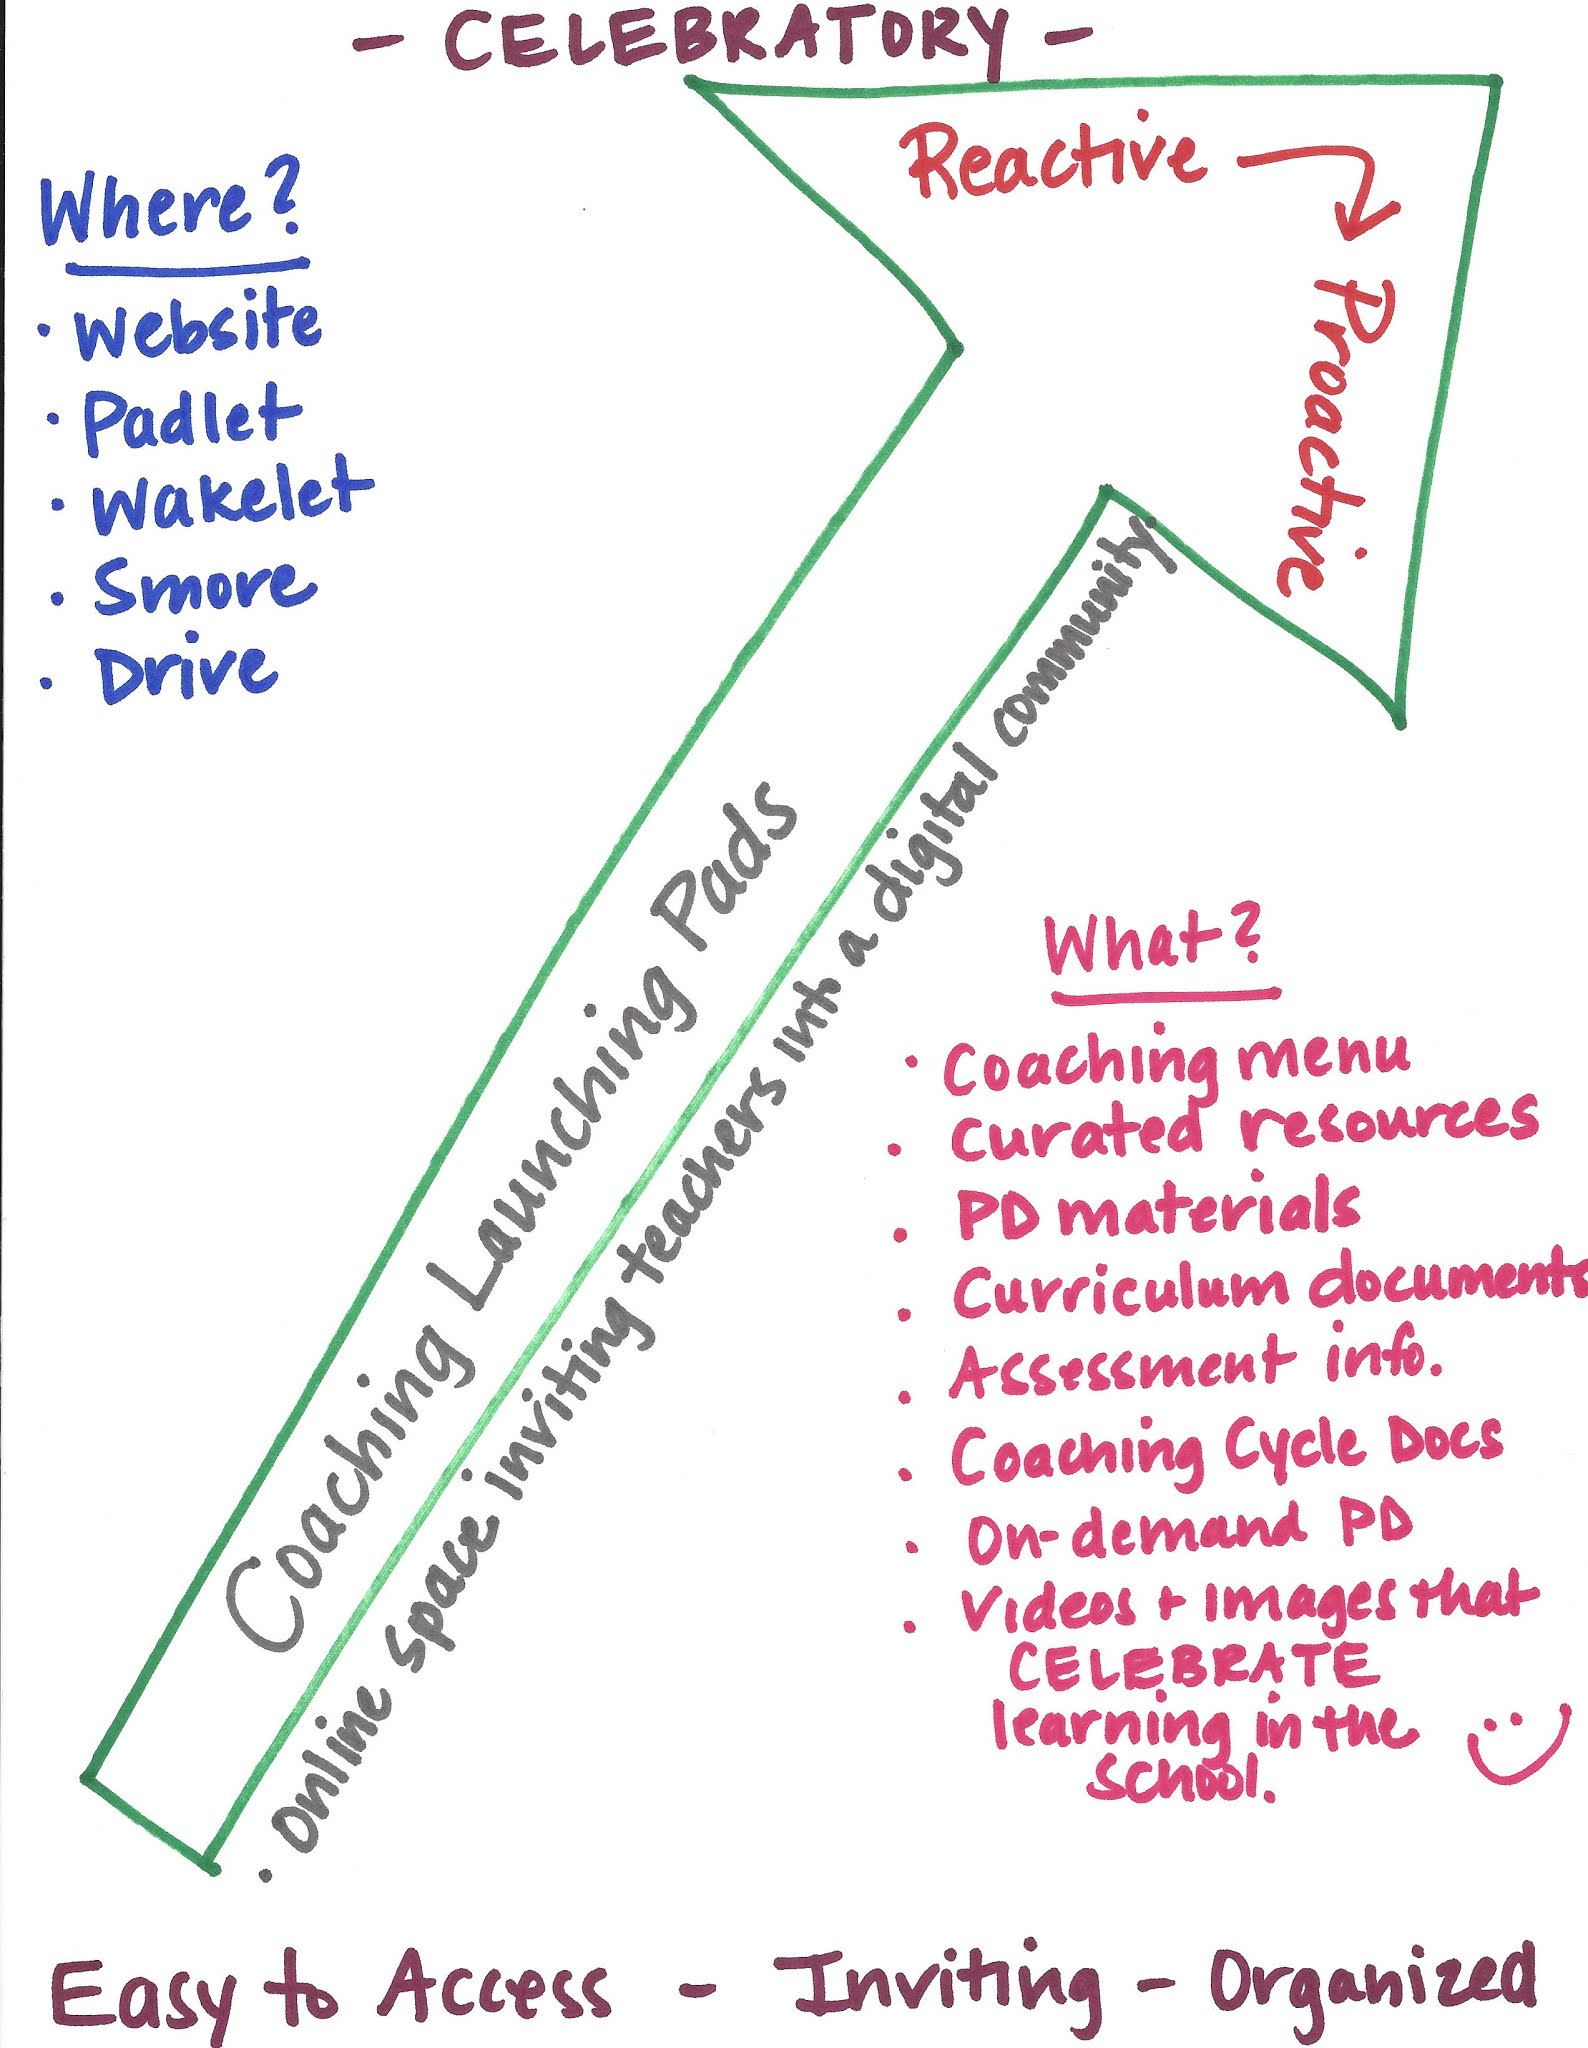 - CELEBRATORY -
Reactive
Proactive
Where?
· Website
· Padlet
· Wakelet
· Smore
· Drive
Coaching Launching Pads
· Online space inviting teachers into a digital community.
What?
· Coaching menu
· Curated resources
· PD materials
· Curriculum documents
· Assessment info.
· Coaching Cycle Docs
· On-demand PD
· Videos + Images that
CELEBRATE
learning in the
School.
Easy to Access - Inviting - Organized